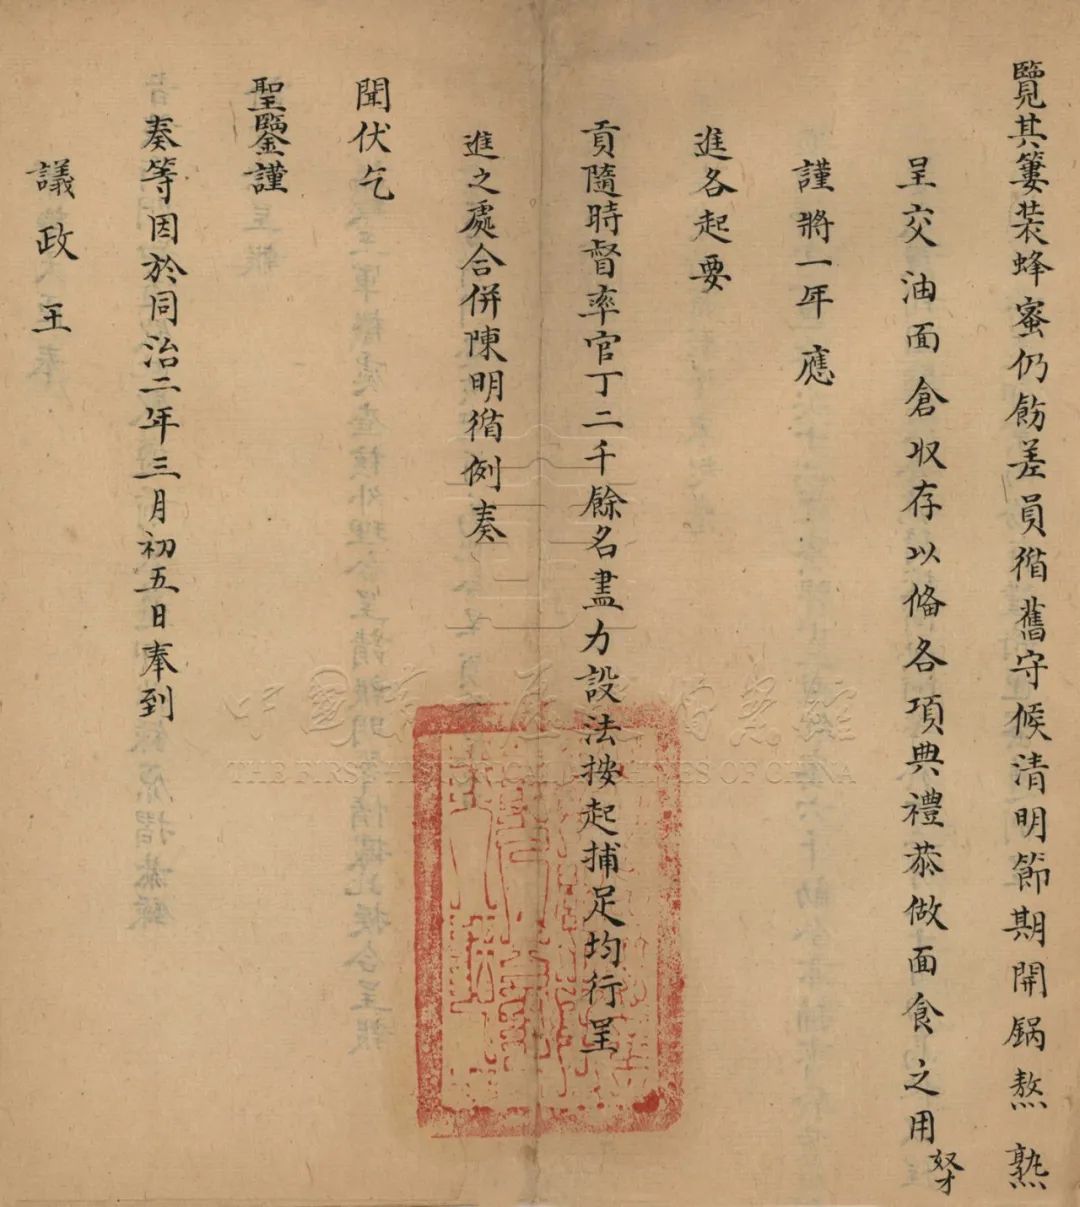 覽其簍装蜂蜜仍飭差員循舊守候清明節期開鍋熬熟
呈交油面倉収存以俻各項典禮恭做面食之用奴才
謹將一年應
進各起要
貢隨時督率官丁二千餘名盡力設法按起捕足均行呈
進之處合併陳明循例奏
聞伏乞
聖鑒謹
奏等因於同治二年三月初五日奉到
議政王
THE FIRST HISTORICAL ARCHIVES OF CHINA